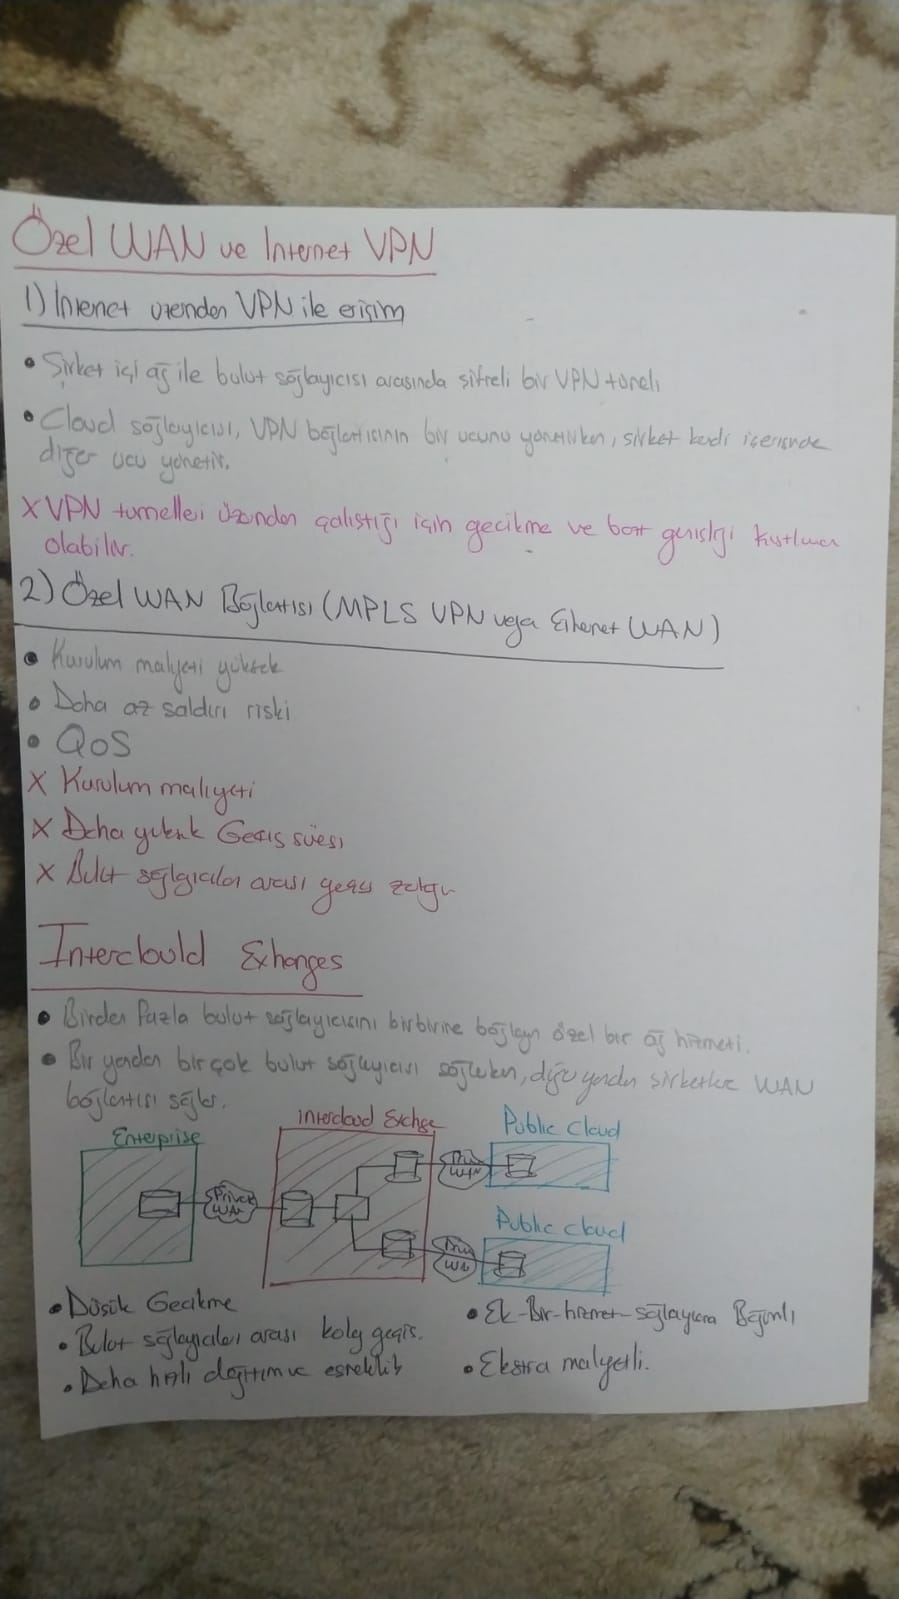 Özel WAN ve Internet VPN
1) İnternet üzerinden VPN ile erişim
• Şirket içi ağ ile bulut sağlayıcısı arasında şifreli bir VPN tüneli
• Cloud sağlayıcısı, VPN bağlantısının bir ucunu yönetirken, şirket kendi içerisinde
diğer ucu yönetir.
X VPN tunelleri üzerinden çalıştığı için gecikme ve bant genişliği kısıtlaması
olabilir.
2) Özel WAN Bağlantısı (MPLS VPN veya Ethernet WAN)
• Kurulum maliyeti yüksek
• Daha az saldırı riski
• QoS
X Kurulum maliyeti
X Daha yüksek Geçiş süresi
X Bulut sağlayıcıları arası geçiş zorluğu
Intercbuld Exhanges
• Birden fazla bulut sağlayıcısını birbirine bağlayan özel bir ağ hizmeti.
• Bir yandan bir çok bulut sağlayıcısı sağlarken, diğer yandan şirketlere WAN
bağlantısı sağlar.
Enterprise
Intercloud Exchge
Public Cloud
Private WAN
WAN
Public cloud
WA
• Düşük Gecikme
• Bulut sağlayıcıları arası kolay geçiş.
• Daha hızlı dağıtım ve esneklik
• Ek-Bir-hizmet-sağlayıcıya Bağımlı
• Ekstra maliyetli.